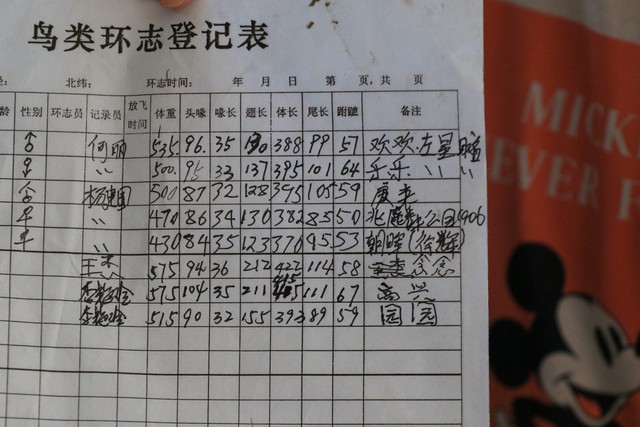 鸟类环志登记表
北纬: 环志时间: 年 月 日 第 页,共 页
龄 性别 环志员 记录员 放飞时间 体重 头喙 喙长 翅长 体长 尾长 跗蹠 备注
♂ 何丽 535 96. 35 388 99 57 欢欢.左星
♀ 〃 500. 95 33 137 395 101 64 乐乐 〃 〃
杨建国 500 87 32 128 395 105 59
♀ 〃 470 86 34 130 382 85 50 公园 1906
♀ 〃 430 84 35 123 370 95 53 朝晖
王杰 575 94 36 212 422 114 58 念念
575 104 35 211 111 67 高兴
515 90 32 155 393 89 59 园园
MICKE
EVER F